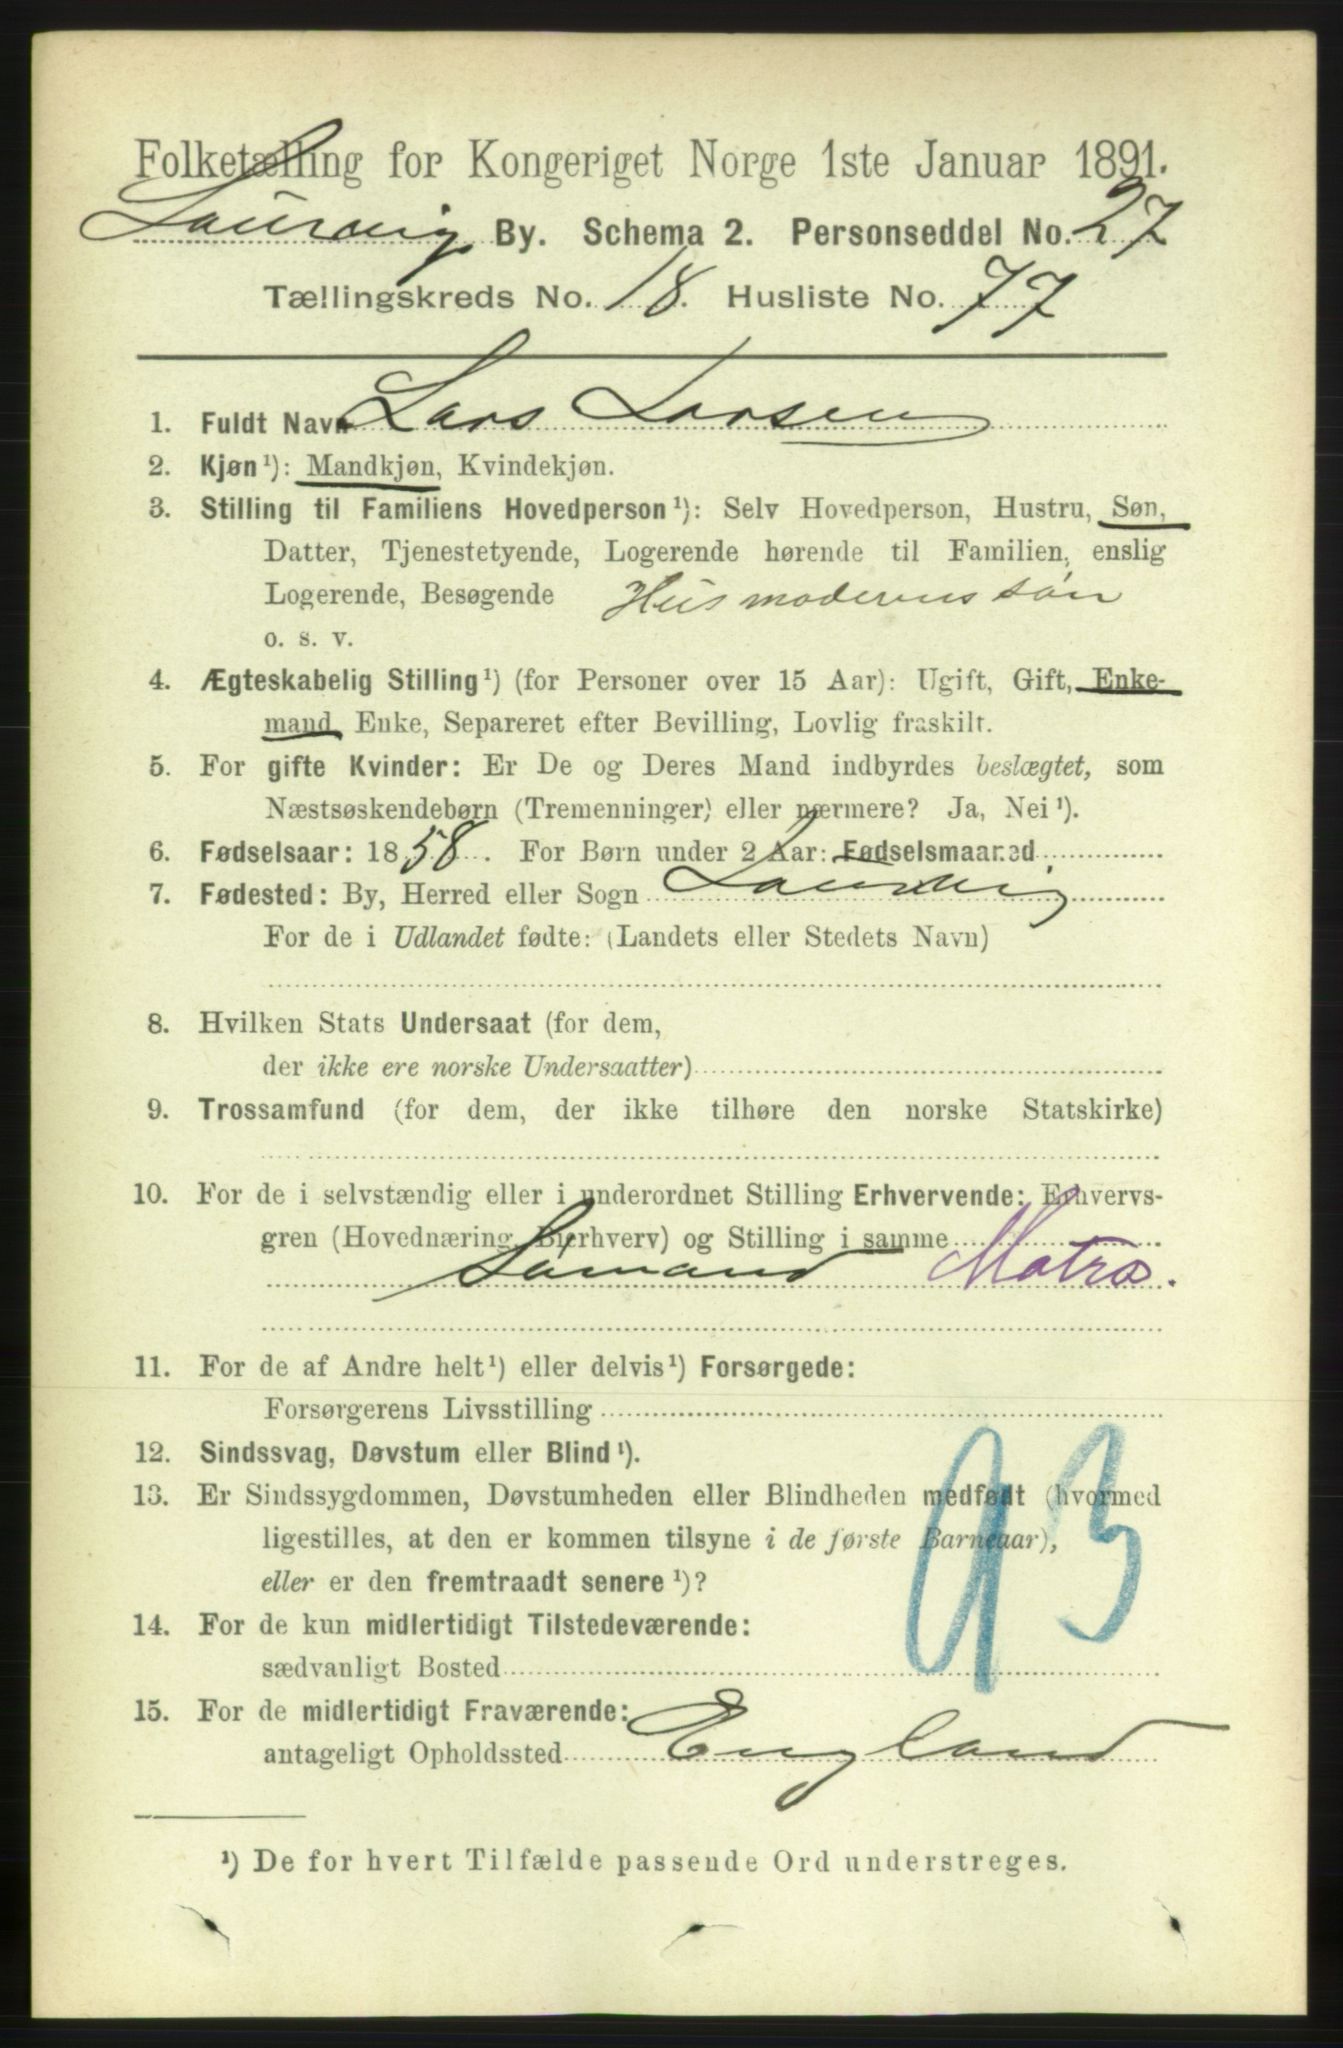 Folketælling for Kongeriget Norge 1ste Januar 1891.
Laurvig By. Schema 2. Personseddel No. 27
Tællingskreds No. 18. Husliste No. 77
1. Fuldt Navn Lars Larsen
2. Kjøn¹): Mandkjøn, Kvindekjøn.
3. Stilling til Familiens Hovedperson¹): Selv Hovedperson, Hustru, Søn,
Datter, Tjenestetyende, Logerende hørende til Familien, enslig
Logerende, Besøgende Husmoderens søn
o. s. v.
4. Ægteskabelig Stilling¹) (for Personer over 15 Aar): Ugift, Gift, Enke-
mand, Enke, Separeret efter Bevilling, Lovlig fraskilt.
5. For gifte Kvinder: Er De og Deres Mand indbyrdes beslægtet, som
Næstsøskendebørn (Tremenninger) eller nærmere? Ja, Nei¹).
6. Fødselsaar: 1858. For Børn under 2 Aar: Fødselsmaaned
7. Fødested: By, Herred eller Sogn Laurvig
For de i Udlandet fødte: (Landets eller Stedets Navn)
8. Hvilken Stats Undersaat (for dem,
der ikke ere norske Undersaatter)
9. Trossamfund (for dem, der ikke tilhøre den norske Statskirke)
10. For de i selvstændig eller i underordnet Stilling Erhvervende: Erhvervs-
gren (Hovednæring, Bierhverv) og Stilling i samme
Sømand Matros.
11. For de af Andre helt¹) eller delvis¹) Forsørgede:
Forsørgerens Livsstilling
12. Sindssvag, Døvstum eller Blind¹).
13. Er Sindssygdommen, Døvstumheden eller Blindheden medfødt (hvormed
ligestilles, at den er kommen tilsyne i de første Barneaar),
eller er den fremtraadt senere¹)?
93
14. For de kun midlertidigt Tilstedeværende:
sædvanligt Bosted
15. For de midlertidigt Fraværende:
antageligt Opholdssted England
¹) De for hvert Tilfælde passende Ord understreges.